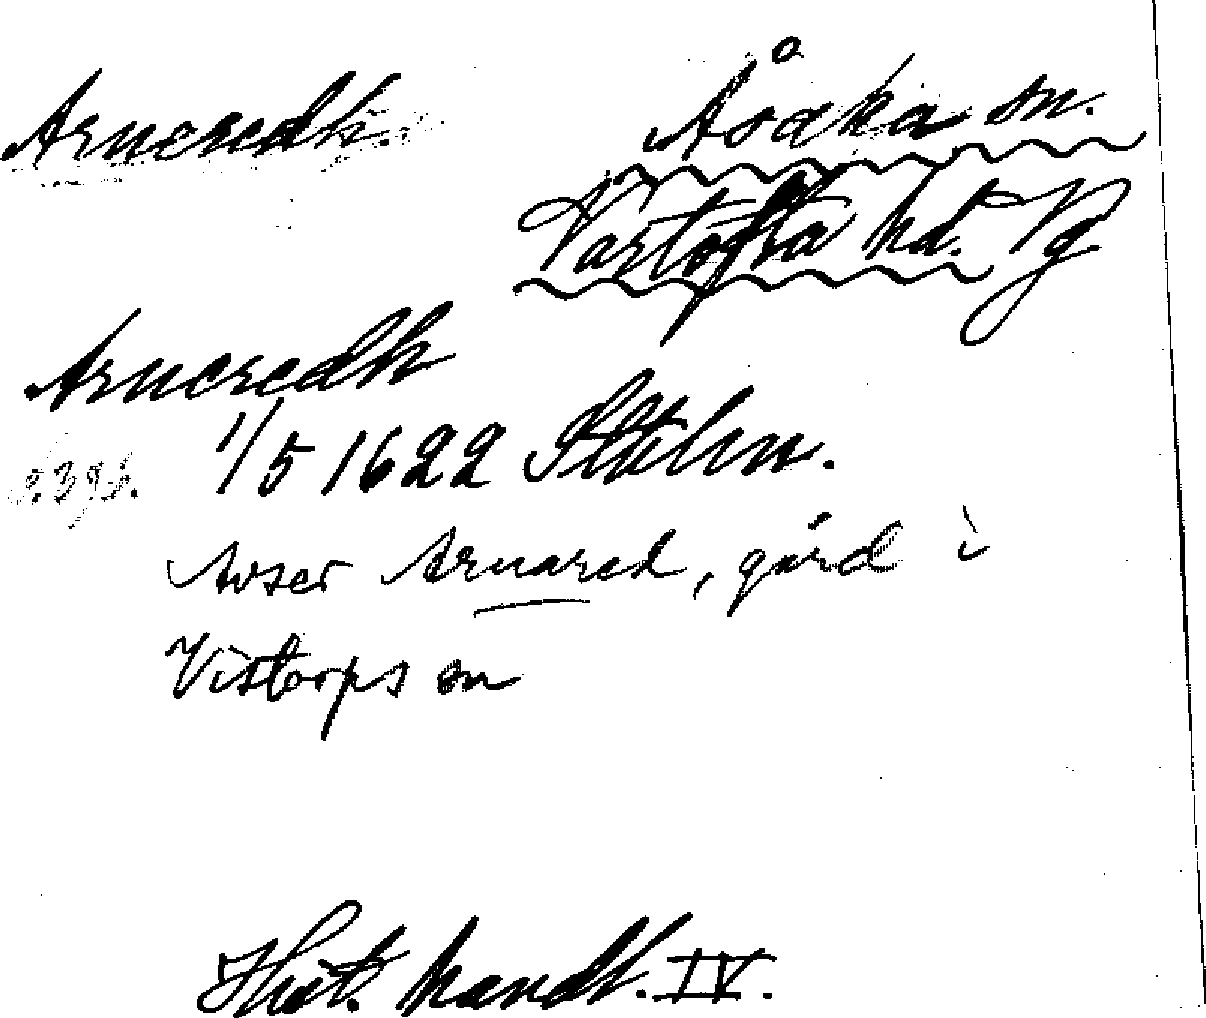 Arneredh. Åsaka sn.
Vartofta hd. Vg
Arneredh
s. 396. 1/5 1622 Sthlm.
Avser Arnared, gård i
Vistorps sn
Hist. handl. IV.